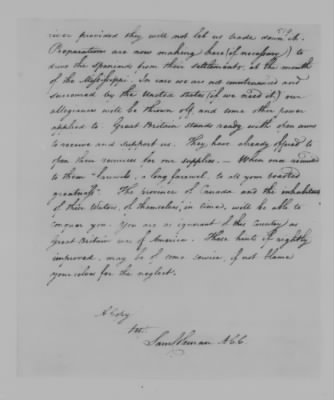 river provided they will not let us trade down it.
Preparations are now making here (if necessary) to
drive the spaniards from their settlements, at the mouth
of the Mississippi. In case we are not countenanced and
succoured by the United states (if we need it) our
allegiance will be thrown off, and some other power
applied to. Great Britain stands ready with open arms
to receive and support us. They have already offered to
open their resources for our supplies. - When once reunited
to them "farewell, a long farewel, to all your boasted
greatness" - The province of Canada and the inhabitants
of these Waters, of themselves, in time, will be able to
conquer you. You are as ignorant of this Country as
Great Britain was of America. These hints if rightly
improved, may be of some service, if not blame
yourselves for the neglect.
A Copy
Saml